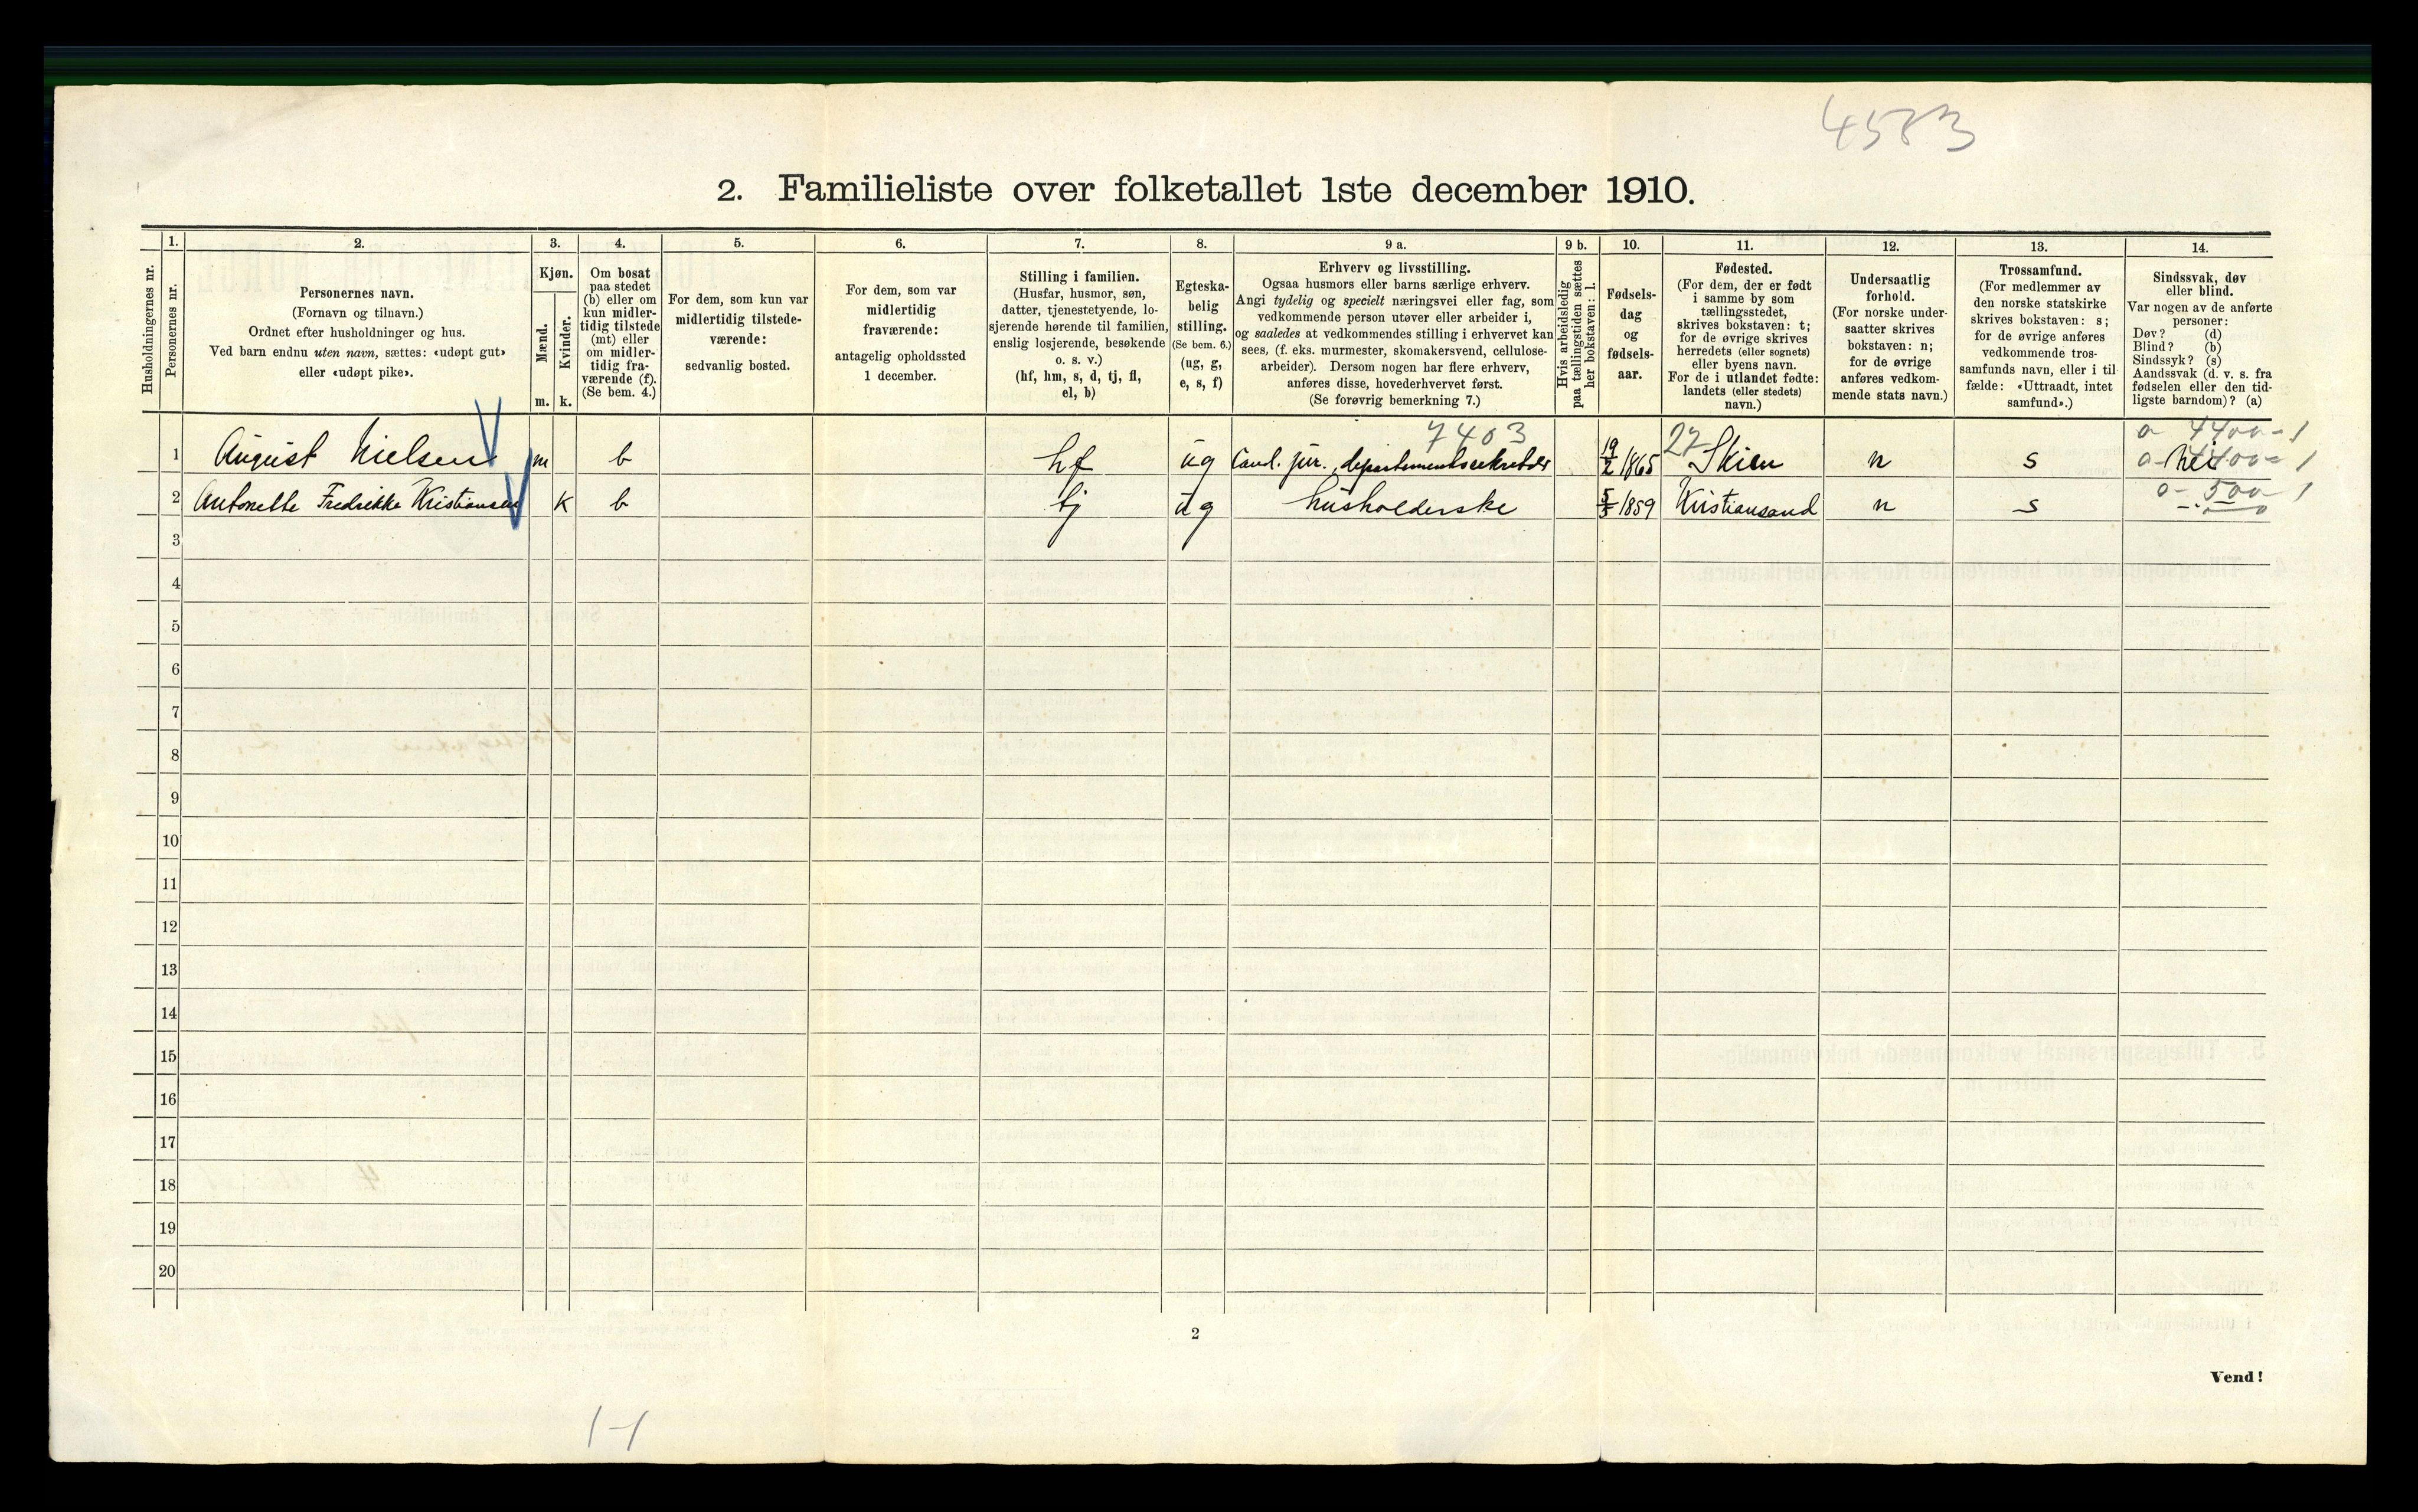 4583
2. Familieliste over folketallet 1ste december 1910.
Husholdningernes nr.
1.
Personernes nr.
2.
Personernes navn.
(Fornavn og tilnavn.)
Ordnet efter husholdninger og hus.
Ved barn endnu uten navn, sættes: «udøpt gut»
eller «udøpt pike».
3.
Kjøn.
Mænd.
m.
Kvinder.
k.
4.
Om bosat
paa stedet
(b) eller om
kun midler-
tidig tilstede
(mt) eller
om midler-
tidig fra-
værende (f).
(Se bem. 4.)
5.
For dem, som kun var
midlertidig tilstede-
værende:
sedvanlig bosted.
6.
For dem, som var
midlertidig
fraværende:
antagelig opholdssted
1 december.
7.
Stilling i familien.
(Husfar, husmor, søn,
datter, tjenestetyende, lo-
sjerende hørende til familien,
enslig losjerende, besøkende
o. s. v.)
(hf, hm, s, d, tj, fl,
el, b)
8.
Egteska-
belig
stilling.
(Se bem. 6.)
(ug, g,
e, s, f)
9 a.
Erhverv og livsstilling.
Ogsaa husmors eller barns særlige erhverv.
Angi tydelig og specielt næringsvei eller fag, som
vedkommende person utøver eller arbeider i,
og saaledes at vedkommendes stilling i erhvervet kan
sees, (f. eks. murmester, skomakersvend, cellulose-
arbeider). Dersom nogen har flere erhverv,
anføres disse, hovederhvervet først.
(Se forøvrig bemerkning 7.)
9 b.
Hvis arbeidsledig
paa tællingstiden sættes
her bokstaven: l.
10.
Fødsels-
dag
og
fødsels-
aar.
11.
Fødested.
(For dem, der er født
i samme by som
tællingsstedet,
skrives bokstaven: t;
for de øvrige skrives
herredets (eller sognets)
eller byens navn.
For de i utlandet fødte:
landets (eller stedets)
navn.)
12.
Undersaatlig
forhold.
(For norske under-
saatter skrives
bokstaven: n;
for de øvrige
anføres vedkom-
mende stats navn.)
13.
Trossamfund.
(For medlemmer av
den norske statskirke
skrives bokstaven: s;
for de øvrige anføres
vedkommende tros-
samfunds navn, eller i til-
fælde: «Uttraadt, intet
samfund».)
14.
Sindssvak, døv
eller blind.
Var nogen av de anførte
personer:
Døv? (d)
Blind? (b)
Sindssyk? (s)
Aandssvak (d. v. s. fra
fødselen eller den tid-
ligste barndom)? (a)
7403 27 0 - 4400 - 1
1 August Nielsen m b hf ug Cand. jur., departementssekretær 19/2 1865 Skien n s nei 0 - 4400 - 1
2 Antonette Fredrikke Kristiansen k b tj ug husholderske 5/5 1859 Kristiansand n s 0 - 500 - 1
3
4
5
6
7
8
9
10
11
12
13
14
15
16
17
18
19
20
2
Vend!
1-1